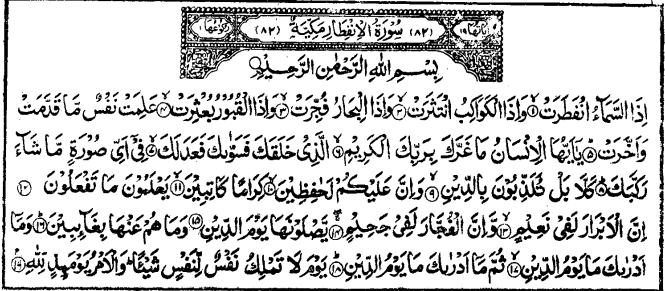 اٰيَاتُهَا ١٩ (٨٢) سُوْرَةُ الْاِنْفِطَارِ مَكِّيَّةٌ (٨٢) رُكُوْعُهَا ١
بِسْمِ اللّٰهِ الرَّحْمٰنِ الرَّحِيْمِ
اِذَا السَّمَآءُ انْفَطَرَتْ ۱ وَاِذَا الْكَوَاكِبُ انْتَثَرَتْ ۲ وَاِذَا الْبِحَارُ فُجِّرَتْ ۳ وَاِذَا الْقُبُوْرُ بُعْثِرَتْ ۴ عَلِمَتْ نَفْسٌ مَّا قَدَّمَتْ
وَاَخَّرَتْ ۵ يٰۤاَيُّهَا الْاِنْسَانُ مَا غَرَّكَ بِرَبِّكَ الْكَرِيْمِ ۶ الَّذِيْ خَلَقَكَ فَسَوّٰىكَ فَعَدَلَكَ ۷ فِيْۤ اَيِّ صُوْرَةٍ مَّا شَآءَ
رَكَّبَكَ ۸ كَلَّا بَلْ تُكَذِّبُوْنَ بِالدِّيْنِ ۹ وَاِنَّ عَلَيْكُمْ لَحٰفِظِيْنَ ۱۰ كِرَامًا كَاتِبِيْنَ ۱۱ يَعْلَمُوْنَ مَا تَفْعَلُوْنَ ۱۲
اِنَّ الْاَبْرَارَ لَفِيْ نَعِيْمٍ ۱۳ وَّاِنَّ الْفُجَّارَ لَفِيْ جَحِيْمٍ ۱۴ يَّصْلَوْنَهَا يَوْمَ الدِّيْنِ ۱۵ وَمَا هُمْ عَنْهَا بِغَآئِبِيْنَ ۱۶ وَمَاۤ
اَدْرٰىكَ مَا يَوْمُ الدِّيْنِ ۱۷ ثُمَّ مَاۤ اَدْرٰىكَ مَا يَوْمُ الدِّيْنِ ۱۸ يَوْمَ لَا تَمْلِكُ نَفْسٌ لِّنَفْسٍ شَيْئًا ؕ وَالْاَمْرُ يَوْمَئِذٍ لِّلّٰهِ ۱۹